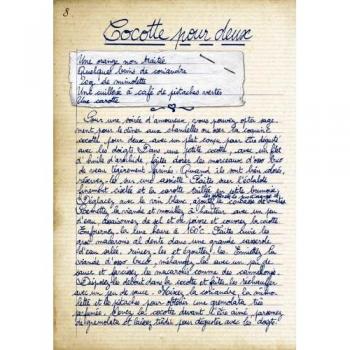 8.
Cocotte pour deux
Une orange non traitée
Quelques brins de coriandre
de mimolette
Une cuillère à café de pistaches vertes
Une carotte
Pour une soirée d'amoureux, vous pouvez opter sage-
ment pour le dîner aux chandelles ou oser la coquine
cocotte pour deux, avec un plat conçu pour être dégusté
avec les doigts. Dans une petite cocotte, avec un filet
d'huile d'arachide, faites dorer les morceaux d'osso buco
de veau légèrement farinés. Quand ils sont bien dorés,
réservez-les sur une assiette. Faites suer l'échalote
finement ciselée et la carotte taillée en petite brunoise.
Déglacez avec le vin blanc, ajoutez
la viande et mouillez à hauteur avec un peu
d'eau, assaisonnez de sel et de poivre et couvrez la cocotte.
Enfournez-la une heure à 160°C. Faites cuire les
gros macaronis al dente dans une grande casserole
d'eau salée, rincez-les et égouttez-les. Emiettez la
viande d'osso buco, mélangez-la avec un peu de
sauce et farcissez les macaronis comme des cannelloni.
Disposez-les debout dans la cocotte et faites-les réchauffer
avec un peu de sauce. Mixez la coriandre, la mimo-
lette et les pistaches pour obtenir une gremolata très
parfumée. Ouvrez la cocotte devant l'être aimé, parsemez
de gremolata et laissez tiédir pour déguster avec les doigts!